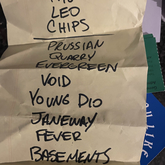 LEO
CHIPS
PRUSSIAN
QUARRY
EVERGREEN
VOID
YOUNG DIO
JANEWAY
FEVER
BASEMENTS